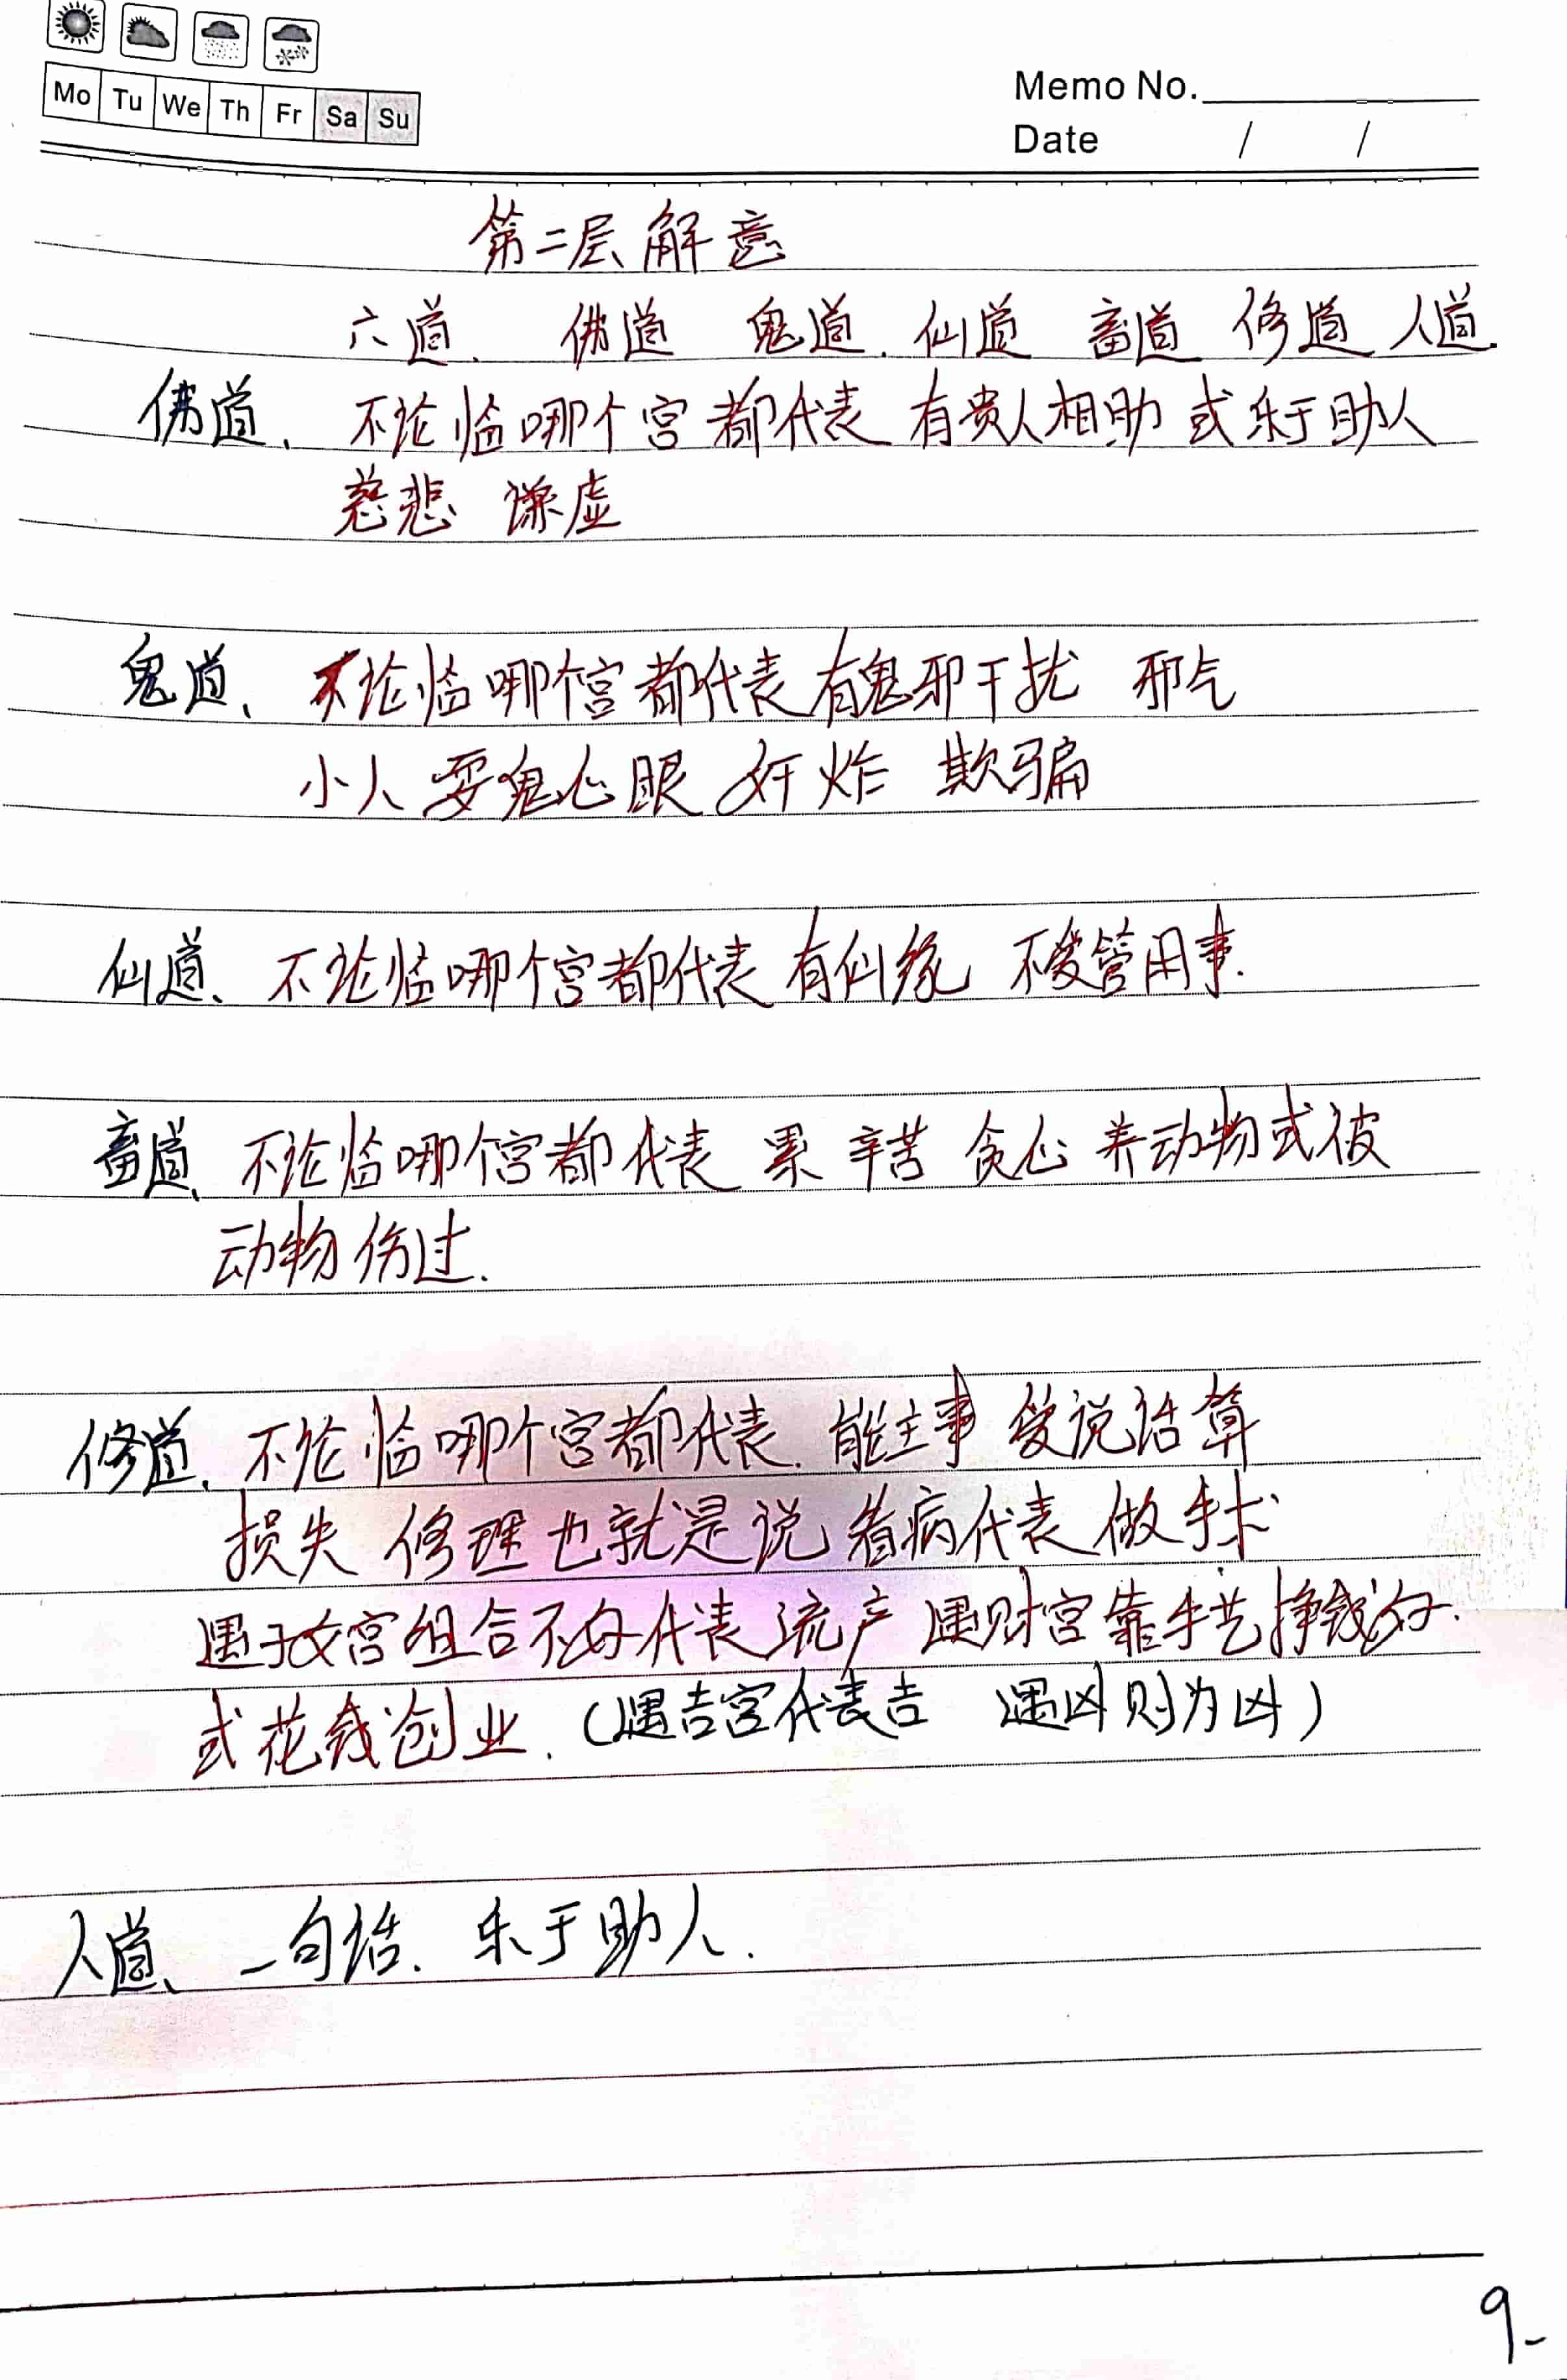 Mo Tu We Th Fr Sa Su
Memo No.
Date / /
第二层解意
六道、佛道 鬼道、仙道 畜道 修道 人道.
佛道、不论临哪个宫都代表 有贵人相助 或乐于助人
慈悲 谦虚
鬼道、不论临哪个宫都代表有鬼邪干扰 邪气
小人 耍鬼心眼 奸炸 欺骗
仙道、不论临哪个宫都代表 有仙缘 不爱管闲事.
畜道、不论临哪个宫都代表 累 辛苦 贪心 养动物或被
动物伤过.
修道、不论临哪个宫都代表.能主事 爱说话算
损失 修理也就是说 看病代表 做手术
遇子女宫组合不好代表流产 遇财宫靠手艺挣钱好.
或花钱创业.(遇吉宫代表吉 遇凶则为凶)
人道、一句话.乐于助人.
9-